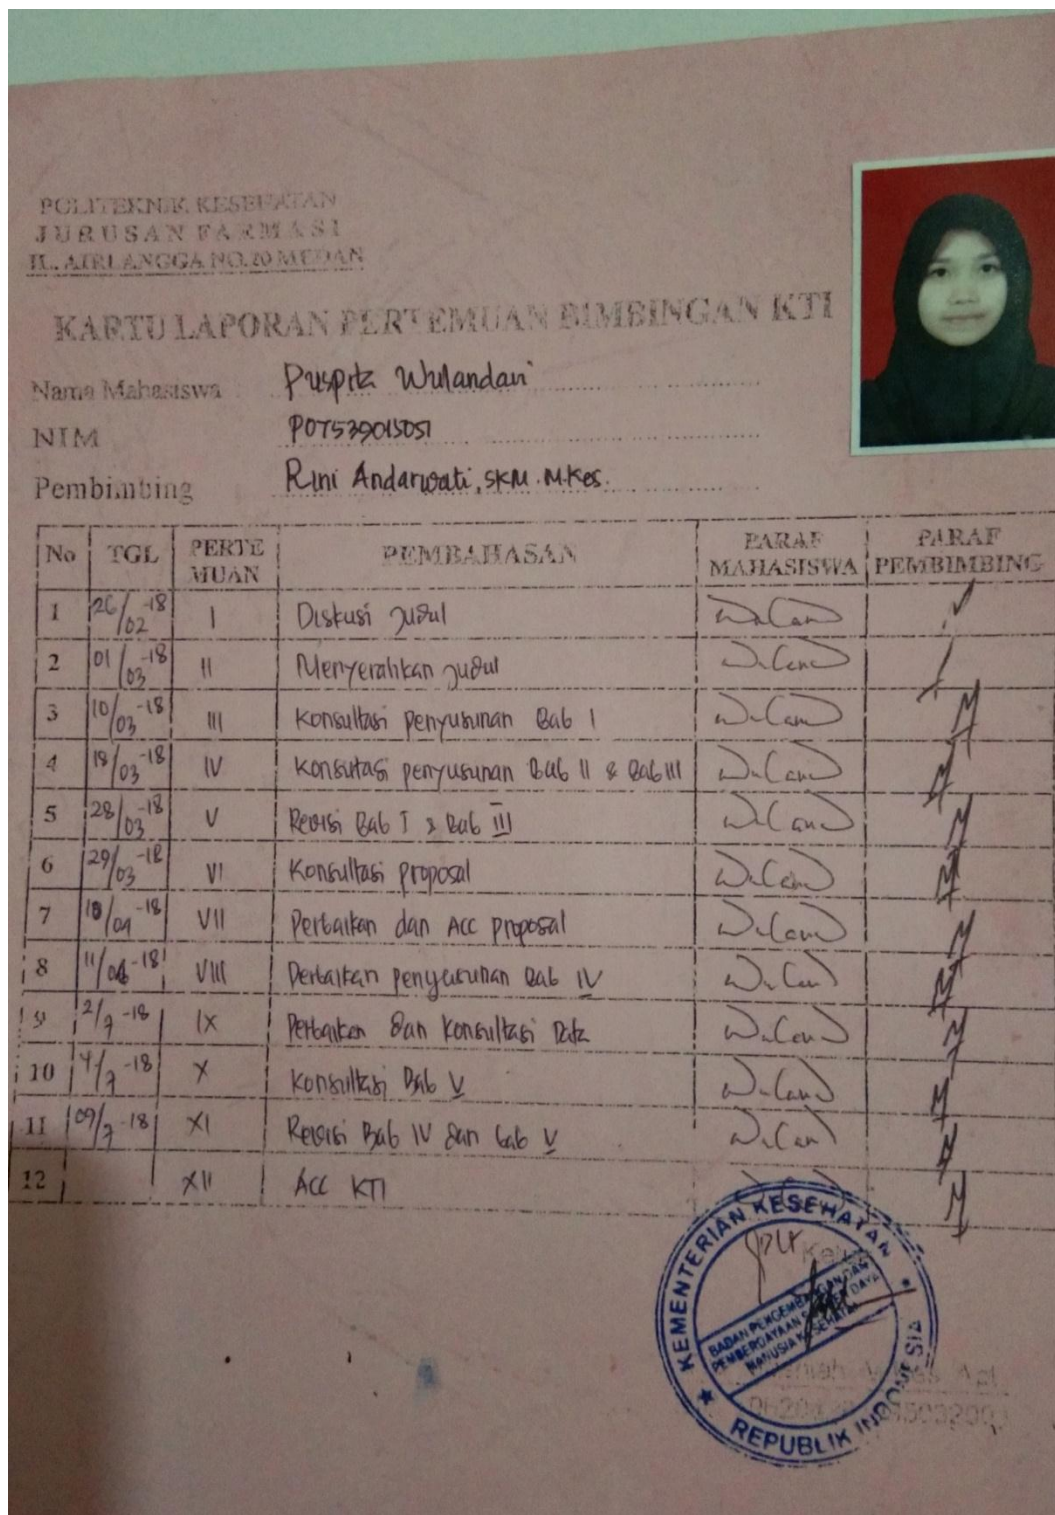 POLITEKNIK KESEHATAN
JURUSAN FARMASI
JL. AIRLANGGA NO.20 MEDAN
KARTU LAPORAN PERTEMUAN BIMBINGAN KTI
Nama Mahasiswa Puspita Wulandari
NIM P07539015051
Pembimbing Rini Andarwati, SKM. M.Kes.
No TGL PERTE MUAN PEMBAHASAN PARAF MAHASISWA PARAF PEMBIMBING
1 26/02-18 I Diskusi judul
2 01/03-18 II Menyerahkan judul
3 10/03-18 III Konsultasi penyusunan Bab I
4 18/03-18 IV Konsutasi penyusunan Bab II & Bab III
5 28/03-18 V Revisi Bab I & Bab III
6 29/03-18 VI Konsultasi proposal
7 10/04-18 VII Perbaikan dan Acc proposal
8 11/04-18 VIII Perbaikan penyusunan Bab IV
9 2/7-18 IX Perbaikan dan Konsultasi Data
10 4/7-18 X Konsultasi Bab V
11 09/7-18 XI Revisi Bab IV dan bab V
12 XII Acc KTI
KEMENTERIAN KESEHATAN
BADAN PENGEMBANGAN DAN
PEMBERDAYAAN SUMBER DAYA
MANUSIA KESEHATAN
REPUBLIK INDONESIA